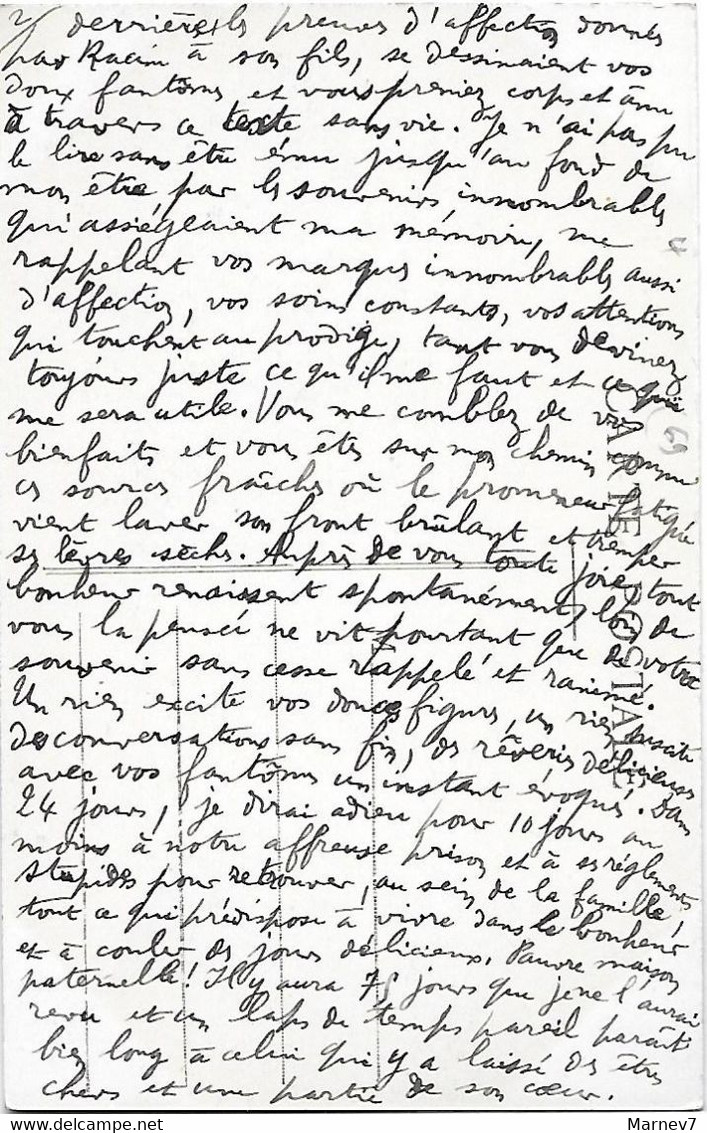 2/ derrière les preuves d'affection donnés
par Racine à son fils, se dessinaient vos
doux fantômes et vous preniez corps et âme
à travers ce texte sans vie. Je n'ai pas pu
le lire sans être ému jusqu'au fond de
mon être, par les souvenirs innombrables
qui assiégeaient ma mémoire, me
rappelant vos marques innombrables aussi
d'affection, vos soins constants, vos attentions
qui touchent au prodige, tant vous devinez
toujours juste ce qu'il me faut et ce qui
me sera utile. Vous me comblez de vos
bienfaits et vous êtes sur mon chemin comme
ces sources fraîches où le promeneur fatigué
vient laver son front brûlant et tremper
ses lèvres sèches. Auprès de vous toute joie, tout
bonheur renaissent spontanément, loin de
vous la pensée ne vit pourtant que de votre
souvenir sans cesse rappelé et ranimé.
Un rien excite vos douces figures, un rien suscite
des conversations sans fin, des rêveries délicieuses
avec vos fantômes un instant évoqués. Dans
24 jours, je dirai adieu pour 10 jours au
moins à notre affreuse prison et à ses règlements
stupides pour retrouver, au sein de la famille,
tout ce qui prédispose à vivre dans le bonheur
et à couler des jours délicieux. Pauvre maison
paternelle! Il y aura 75 jours que je ne l'aurai
revu et un laps de temps pareil paraît
bien long à celui qui y a laissé des êtres
chers et une partie de son cœur.
CARTE POSTALE
69
Marnev7